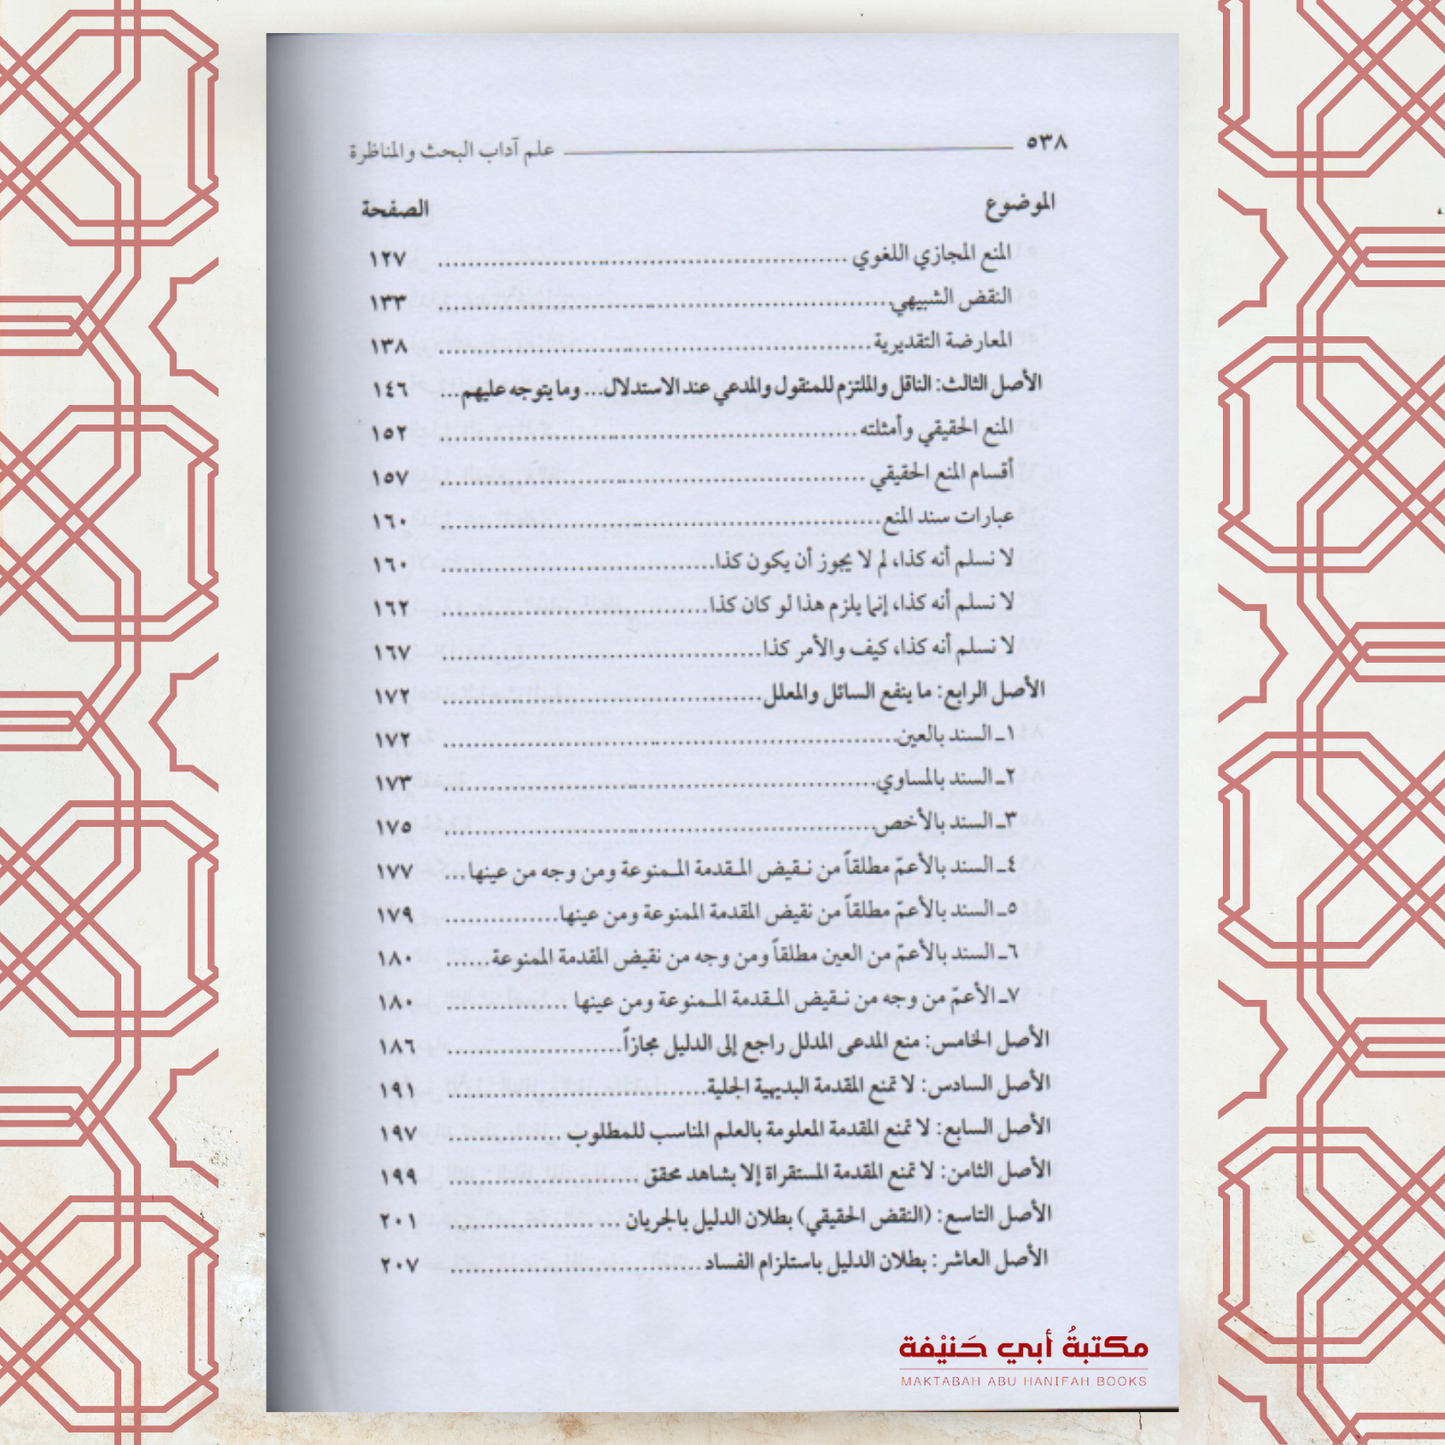 ٥٣٨ علم آداب البحث والمناظرة
الموضوع الصفحة
المنع المجازي اللغوي ١٢٧
النقض الشبيهي ١٣٣
المعارضة التقديرية ١٣٨
الأصل الثالث: الناقل والملتزم للمنقول والمدعي عند الاستدلال... وما يتوجه عليهم... ١٤٦
المنع الحقيقي وأمثلته ١٥٢
أقسام المنع الحقيقي ١٥٧
عبارات سند المنع ١٦٠
لا نسلم أنه كذا، لم لا يجوز أن يكون كذا ١٦٠
لا نسلم أنه كذا، إنما يلزم هذا لو كان كذا ١٦٢
لا نسلم أنه كذا، كيف والأمر كذا ١٦٧
الأصل الرابع: ما ينفع السائل والمعلل ١٧٢
١ـ السند بالعين ١٧٢
٢ـ السند بالمساوي ١٧٣
٣ـ السند بالأخص ١٧٥
٤ـ السند بالأعمّ مطلقاً من نـقيض المـقدمة المـمنوعة ومن وجه من عينها... ١٧٧
٥ـ السند بالأعمّ مطلقاً من نقيض المقدمة الممنوعة ومن عينها ١٧٩
٦ـ السند بالأعمّ من العين مطلقاً ومن وجه من نقيض المقدمة الممنوعة ١٨٠
٧ـ الأعمّ من وجه من نـقيض المـقدمة المـمنوعة ومن عينها ١٨٠
الأصل الخامس: منع المدعى المدلل راجع إلى الدليل مجازاً ١٨٦
الأصل السادس: لا تمنع المقدمة البديهية الجلية ١٩١
الأصل السابع: لا تمنع المقدمة المعلومة بالعلم المناسب للمطلوب ١٩٧
الأصل الثامن: لا تمنع المقدمة المستقراة إلا بشاهد محقق ١٩٩
الأصل التاسع: (النقض الحقيقي) بطلان الدليل بالجريان ٢٠١
الأصل العاشر: بطلان الدليل باستلزام الفساد ٢٠٧
مكتبةُ أبي حَنيْفة
MAKTABAH ABU HANIFAH BOOKS